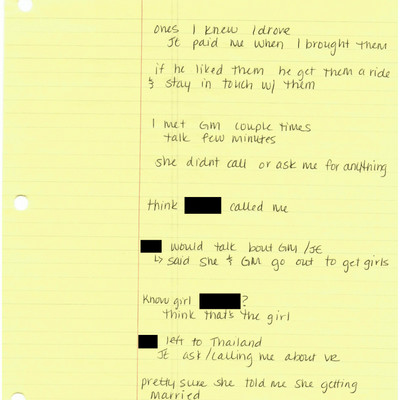 ones I knew I drove
JE paid me when I brought them
if he liked them he get them a ride
& stay in touch w/ them
I met GM couple times
talk few minutes
she didnt call or ask me for anything
think called me
would talk bout GM/JE
↳ said she & GM go out to get girls
Know girl ?
think that's the girl
left to Thailand
JE ask/calling me about VR
pretty sure she told me she getting
married